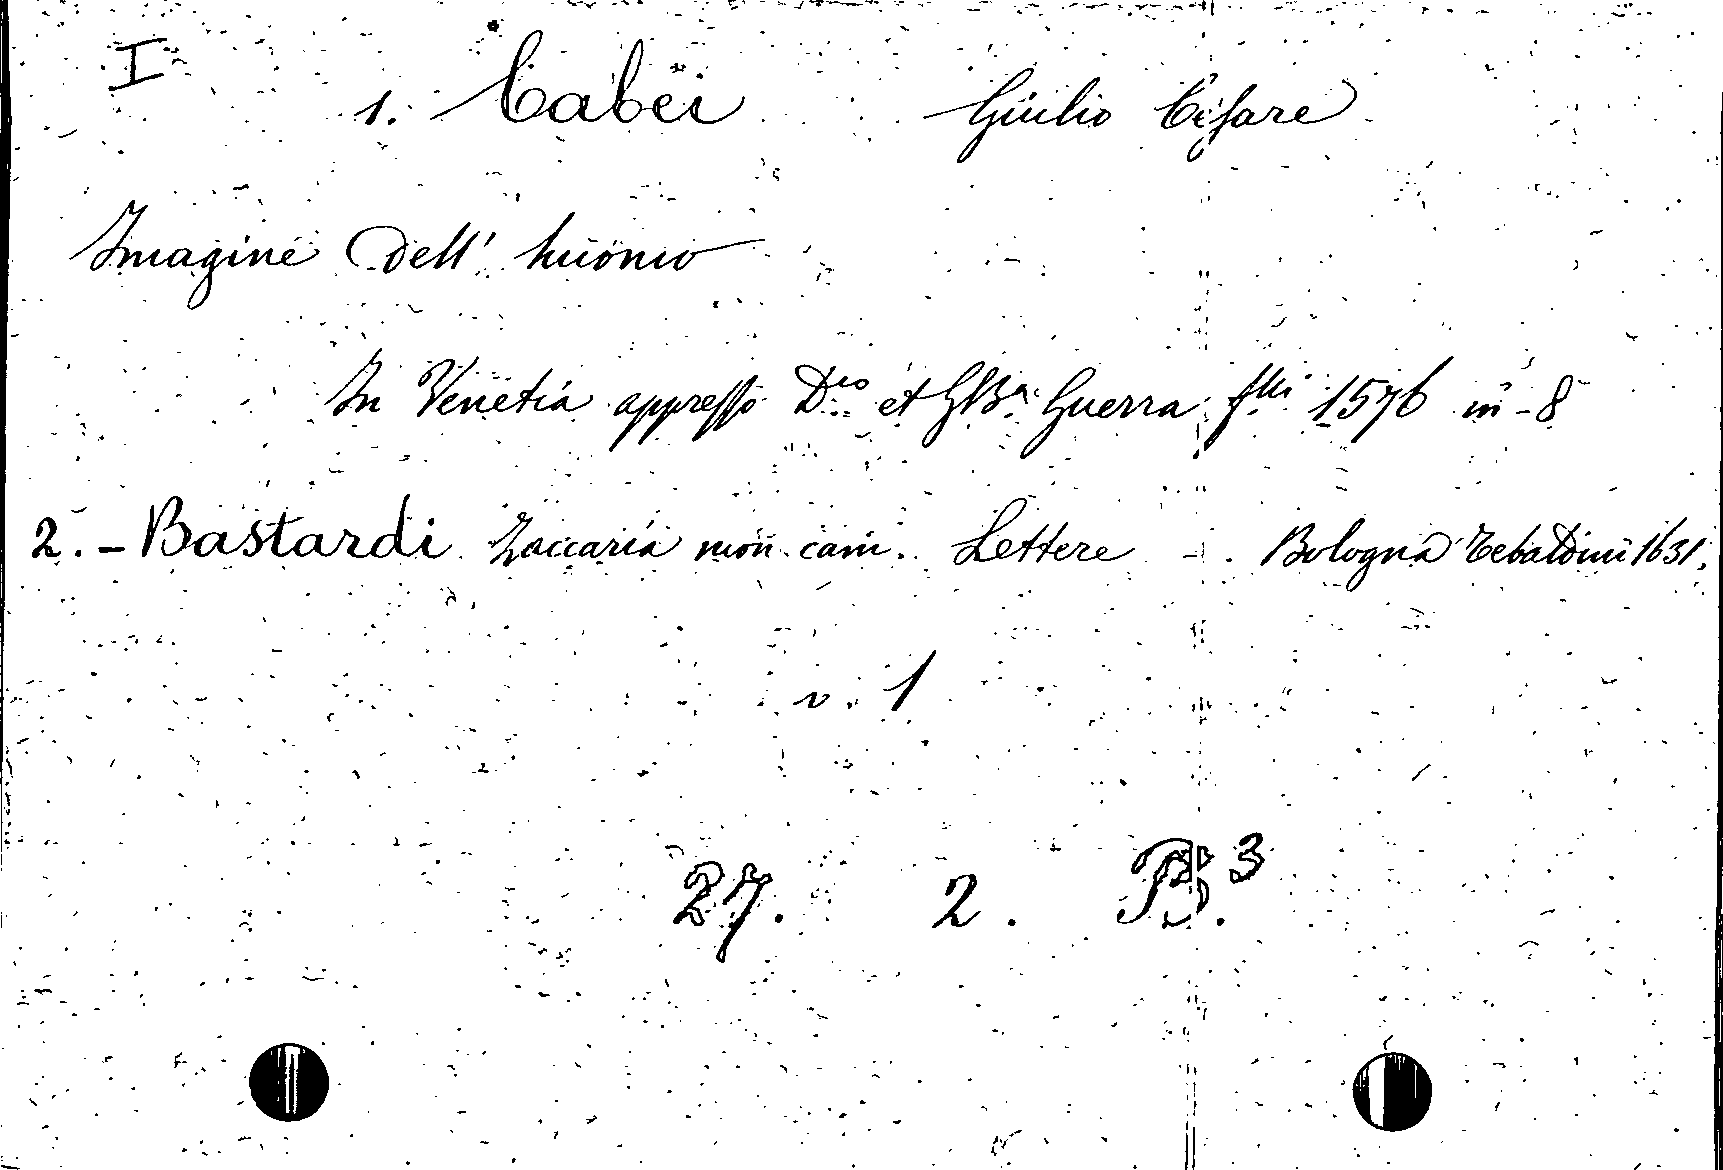 I
1. Cabei Giulio Cesare
Imagine dell' huomo
In Venetia appresso D.co et GBa Guerra flli 1576 in-8
2. - Bastardi Zaccaria mon. cam. Lettere - Bologna Tebaldini 1631.
v. 1
27. 2. B.3